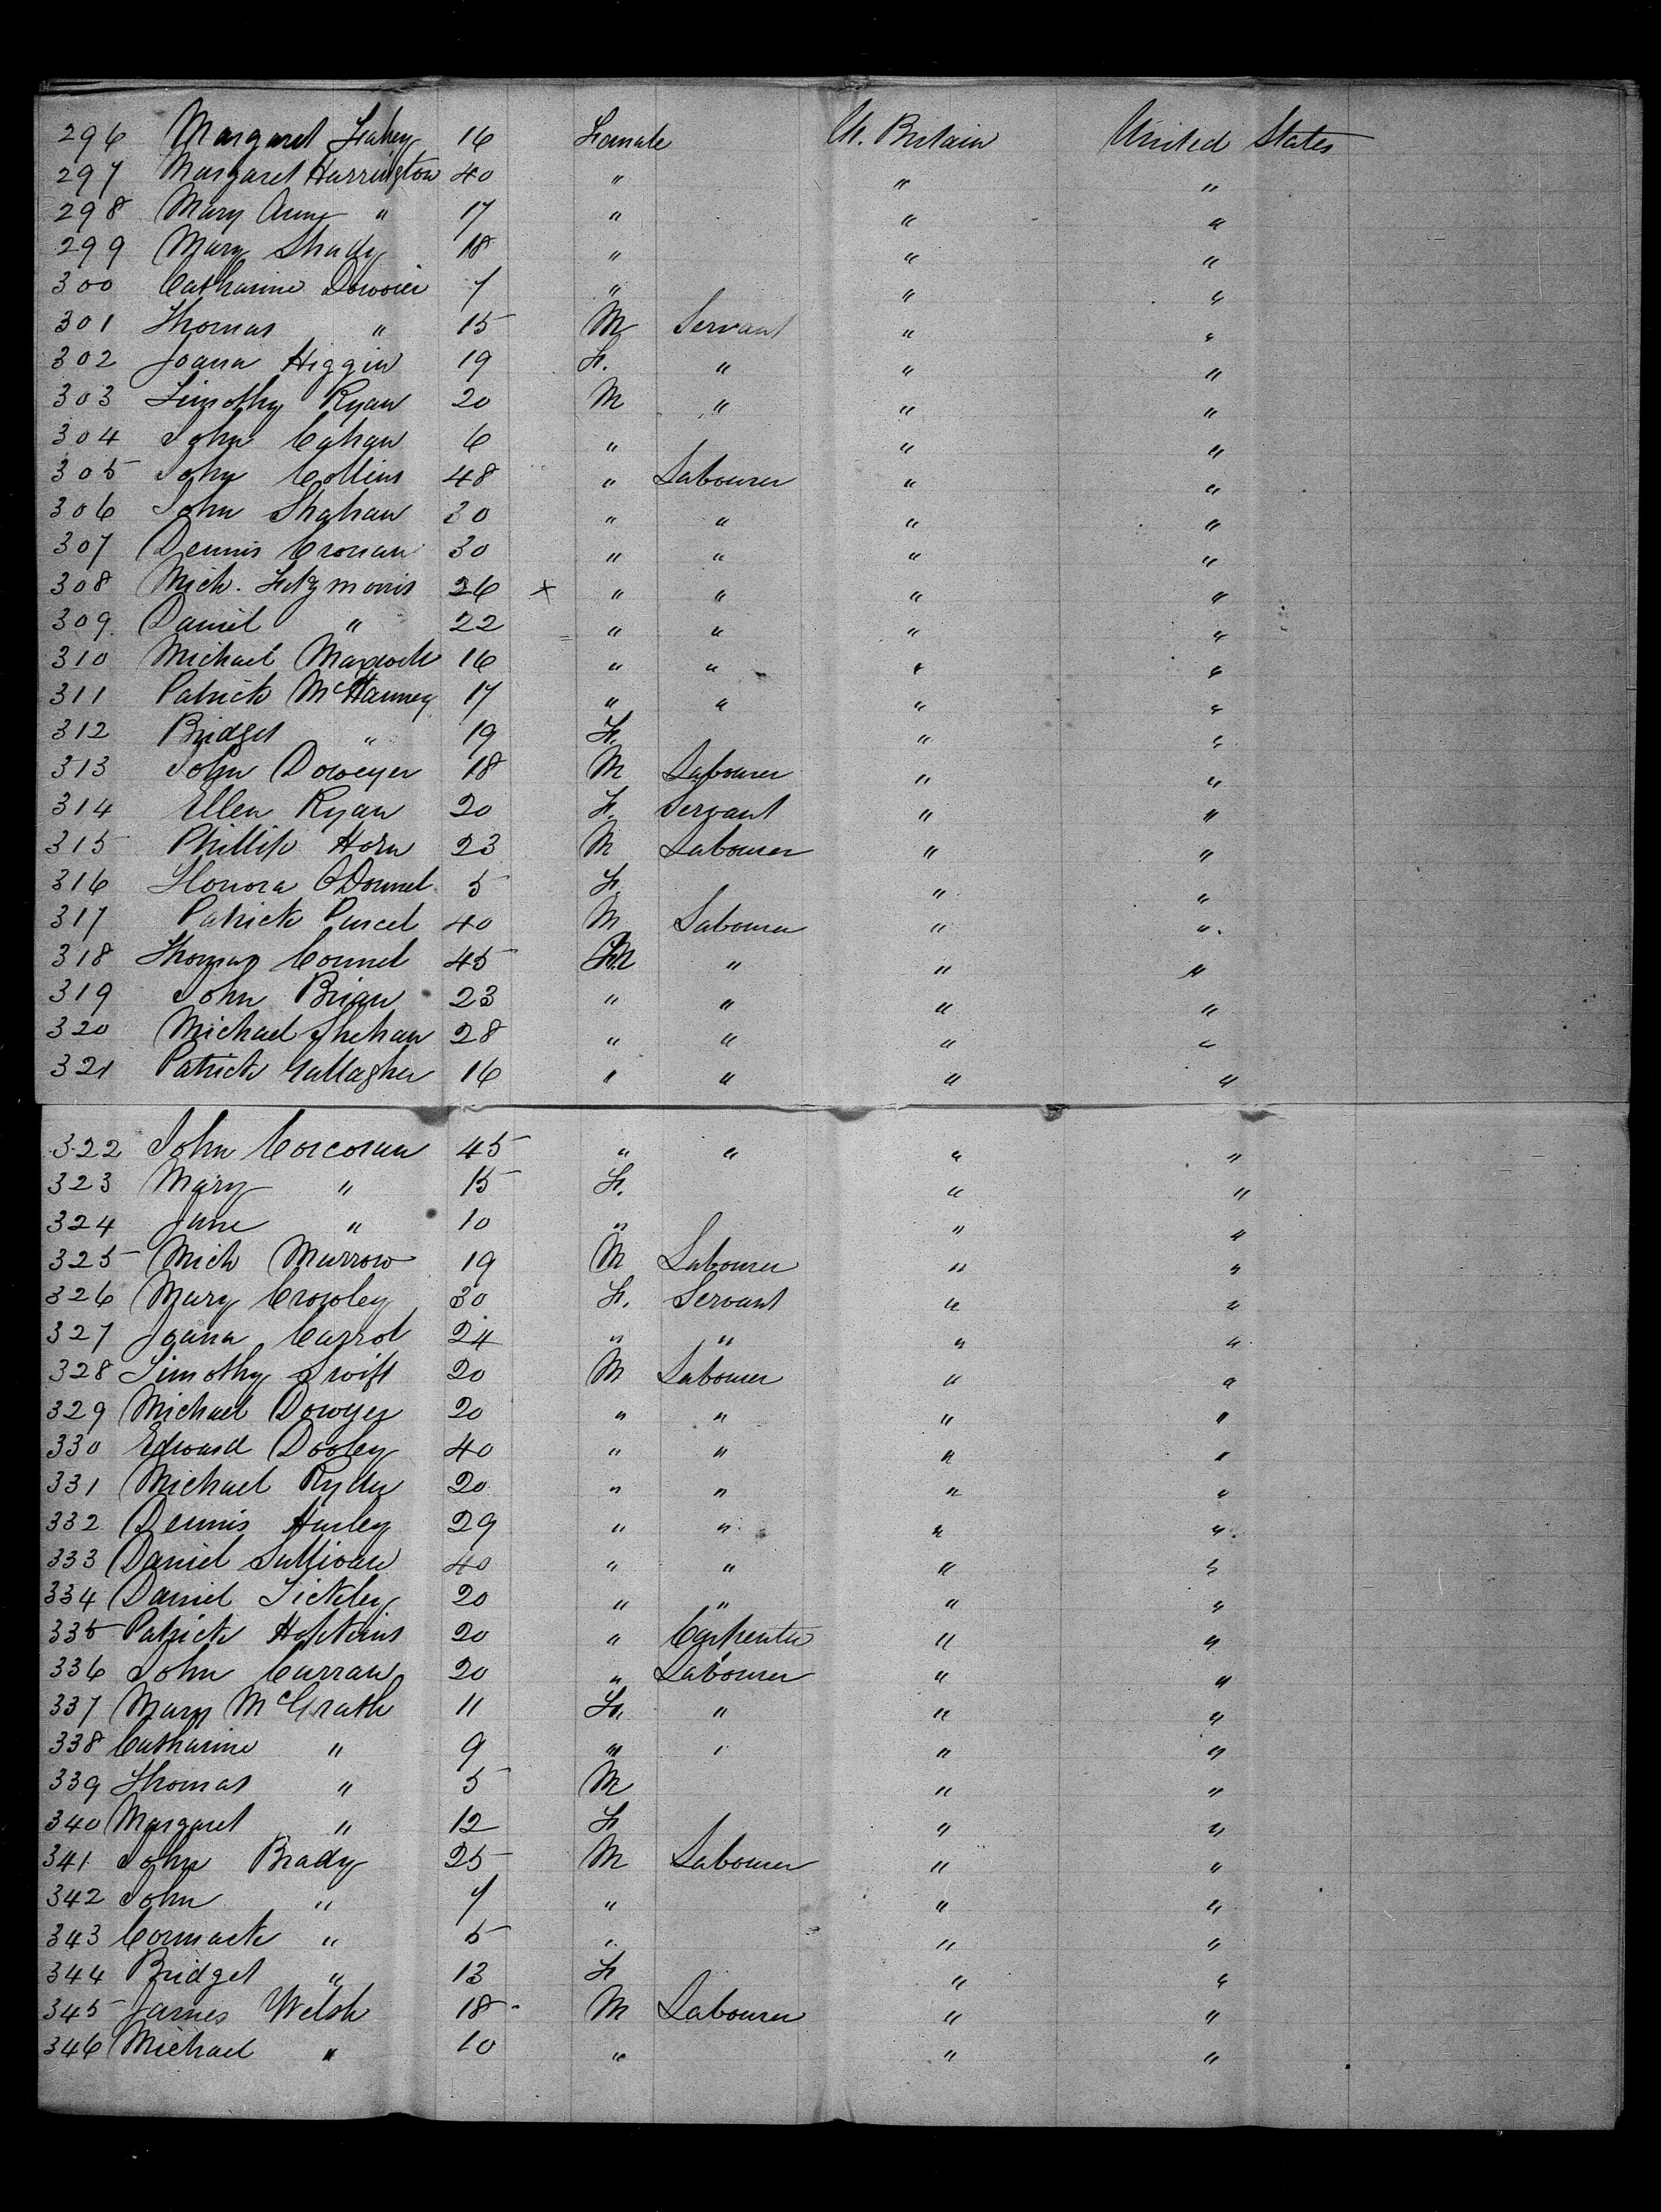 296 Margaret Fahey 16 Female Gt. Britain United States
297 Margaret Harrington 40 " " "
298 Mary Ann " 17 " " "
299 Mary Shady 18 " " "
300 Catharine 7 " " "
301 Thomas " 15 M Servant " "
302 Joana Higgin 19 F. " " "
303 Timothy Ryan 20 M " " "
304 John Cahan 6 " " "
305 John Collins 48 " Labourer " "
306 John Shahan 30 " " " "
307 Dennis Cronan 30 " " " "
308 Mich. Fitzmorris 26 x " " " "
309 Daniel " 22 " " " "
310 Michael 16 " " " "
311 Patrick McHanney 17 " " " "
312 Bridget " 19 F. " "
313 John Doweyer 18 M Labourer " "
314 Ellen Ryan 20 F. Servant " "
315 Phillip Horn 23 M Labourer " "
316 Honora O'Donnel 5 F. " "
317 Patrick Purcel 40 M Labourer " "
318 Thomas Connel 45 M " " "
319 John Brian 23 " " " "
320 Michael Shehan 28 " " " "
321 Patrick Gallagher 16 " " " "
322 John Corcoran 45 " " " "
323 Mary " 15 F. " "
324 Jane " 10 " " "
325 Mich Murrow 19 M Labourer " "
326 Mary Crowley 30 F. Servant " "
327 Joana Carrol 24 " " " "
328 Timothy Swift 20 M Labourer " "
329 Michael Dowyer 20 " " " "
330 Edward Dooley 40 " " " "
331 Michael 20 " " " "
332 Dennis Hurley 29 " " " "
333 Daniel Sullivan 40 " " " "
334 Daniel Tickley 20 " " " "
335 Patrick Hopkins 20 " Carpenter " "
336 John Curran 20 " Labourer " "
337 Mary McGrath 11 F. " " "
338 Catharine " 9 " " " "
339 Thomas " 5 M " "
340 Margaret " 12 F " "
341 John Brady 25 M Labourer " "
342 John " 7 " " "
343 Cormack " 5 " " "
344 Bridget " 13 F " "
345 James Welsh 18 M Labourer " "
346 Michael " 10 " " "